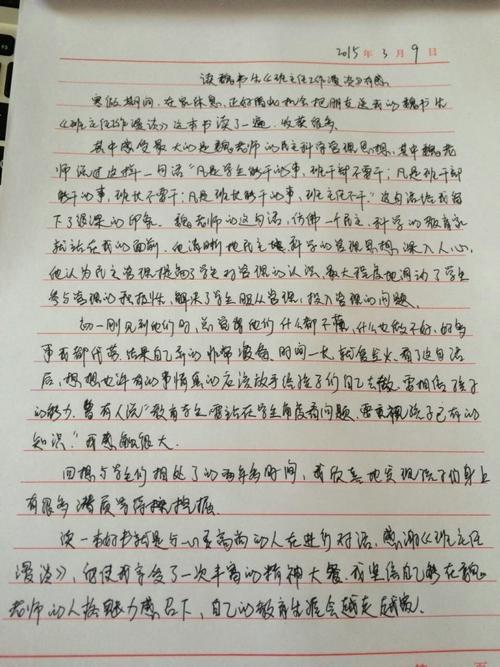 2015 年 3 月 9 日
读魏书生《班主任工作漫谈》有感
寒假期间,在家休息,正好借此机会把朋友送我的魏书生
《班主任工作漫谈》这本书读了一遍,收获很多。
其中感觉最大的是魏老师的民主科学管理思想,其中魏老
师说过这样一句话"凡是学生能干的事,班干部不要干;凡是班干部
能干的事,班长不要干;凡是班长能干的事,班主任不干。"这句话给我留
下了很深的印象。魏老师的这句话,仿佛一个民主、科学的教育家
就站在我的面前,他清晰地民主科学的管理思想,深入人心,
他认为民主管理提高了学生对管理的认识,最大程度地调动了学生
参与管理的积极性,解决了学生服从管理,投入管理的问题。
初一刚见到他们时,总觉得他们什么都不懂,什么也做不好,好多
事情都代劳,结果自己弄的非常疲惫。时间一长,就会上火。有了这句话
后,想想也许有的事情真的应该放手给孩子们自己去做,要相信孩子
的能力。曾有人说"教育学生要站在学生角度看问题,要重视孩子已有的
知识。"我感触很大。
回想与学生们相处了的两年多时间,我欣喜地发现孩子们身上
有很多潜质等待挖掘。
读一本好书就是与一个高尚的人在进行对话,感谢《班主任
漫谈》,它使我享受了一次丰富的精神大餐。我坚信自己能在魏
老师的人格魅力感召下,自己的教育生涯会越走越宽。